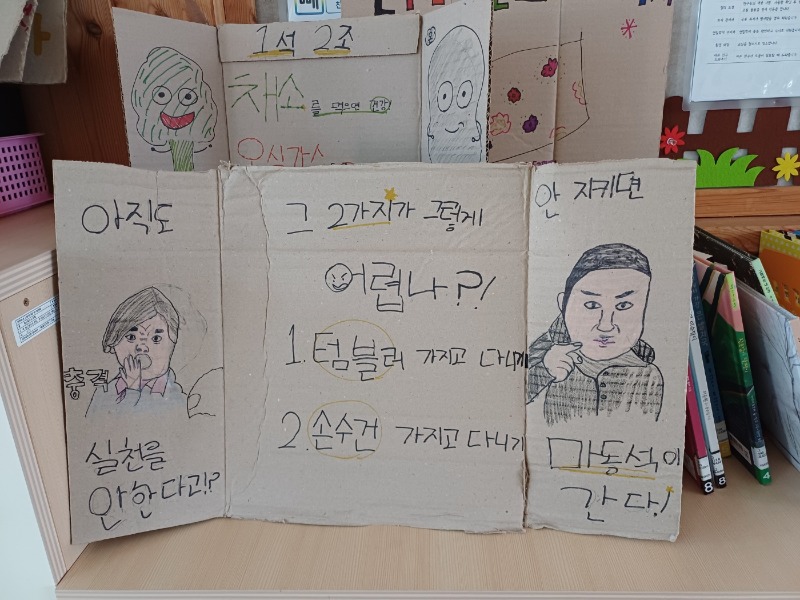 1석 2조
채소를 먹으면 건강!
아직도
충격
실천을
안한다고!?
그 2가지가 그렇게
어렵나?!
1. 텀블러 가지고 다니기
2. 손수건 가지고 다니기
안 지키면
마동석이
간다!
8
8
4